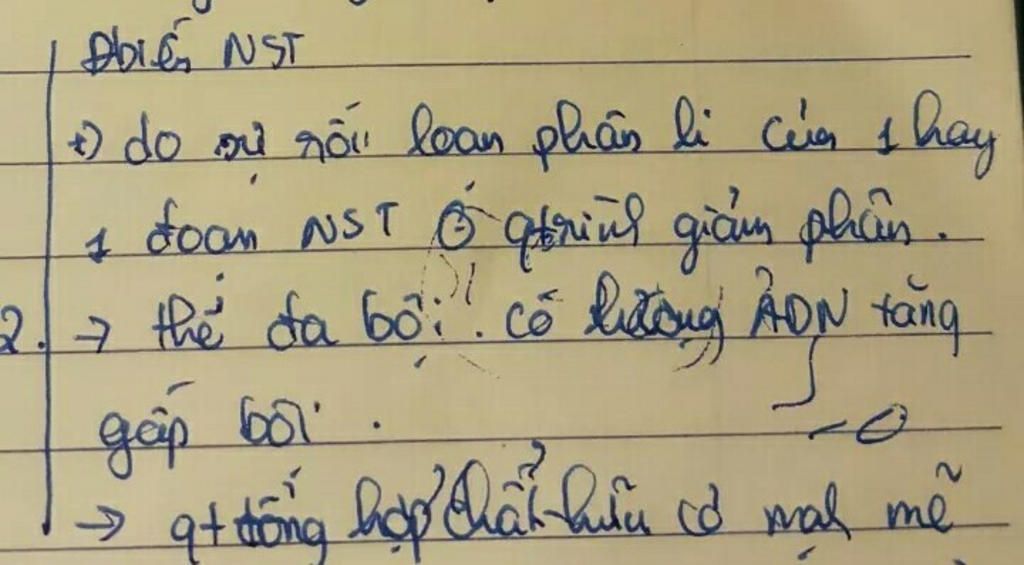 Đbiến NST
+) do sự rối loạn phân li của 1 hay
1 đoạn NST ở qtrình giảm phân.
2. → thể đa bội. có lượng ADN tăng
gấp bội.
→ qt tổng hợp chất hữu cơ mạh mẽ